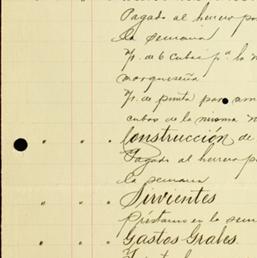 Pagado al herrero po
la semana
n/. de 6 cubas pª. la
marqueseña
n/. de punta para am
cubos de la misma
" " " Construcción de
Pagado al herrero p
la semana
" " " Sirvientes
Préstamo en la sem
" " " Gastos Grales.